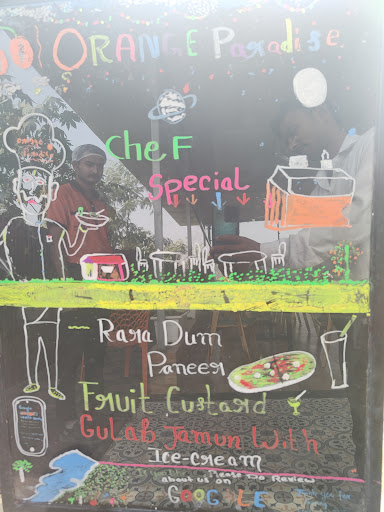 ORANGE Paradise
Chef
Special
Rara Dum
Paneer
Fruit Custard
Gulab Jamun With
Ice-cream
Please Do Review
about us on
GOOGLE